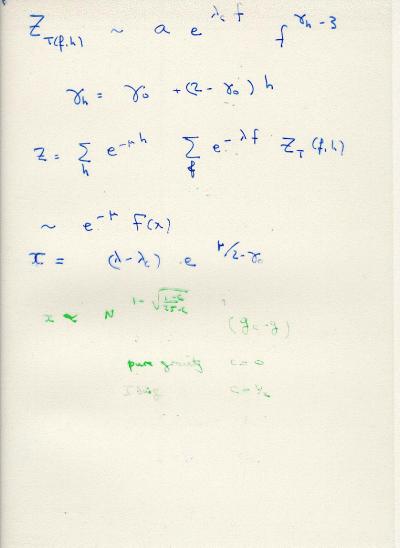 Z_{T(f,h)} ~ a e^{λ_c f} f^{γ_h - 3}
γ_h = γ_0 + (2 - γ_0) h
Z = Σ_h e^{-μ h} Σ_f e^{-λ f} Z_T (f,h)
~ e^{-μ} F(x)
x = (λ - λ_c) e^{μ/2-γ_0}
x ∝ N^{1 - √(1-c/25-c)} (g_c - g)
pure gravity c = 0
Ising c = ½